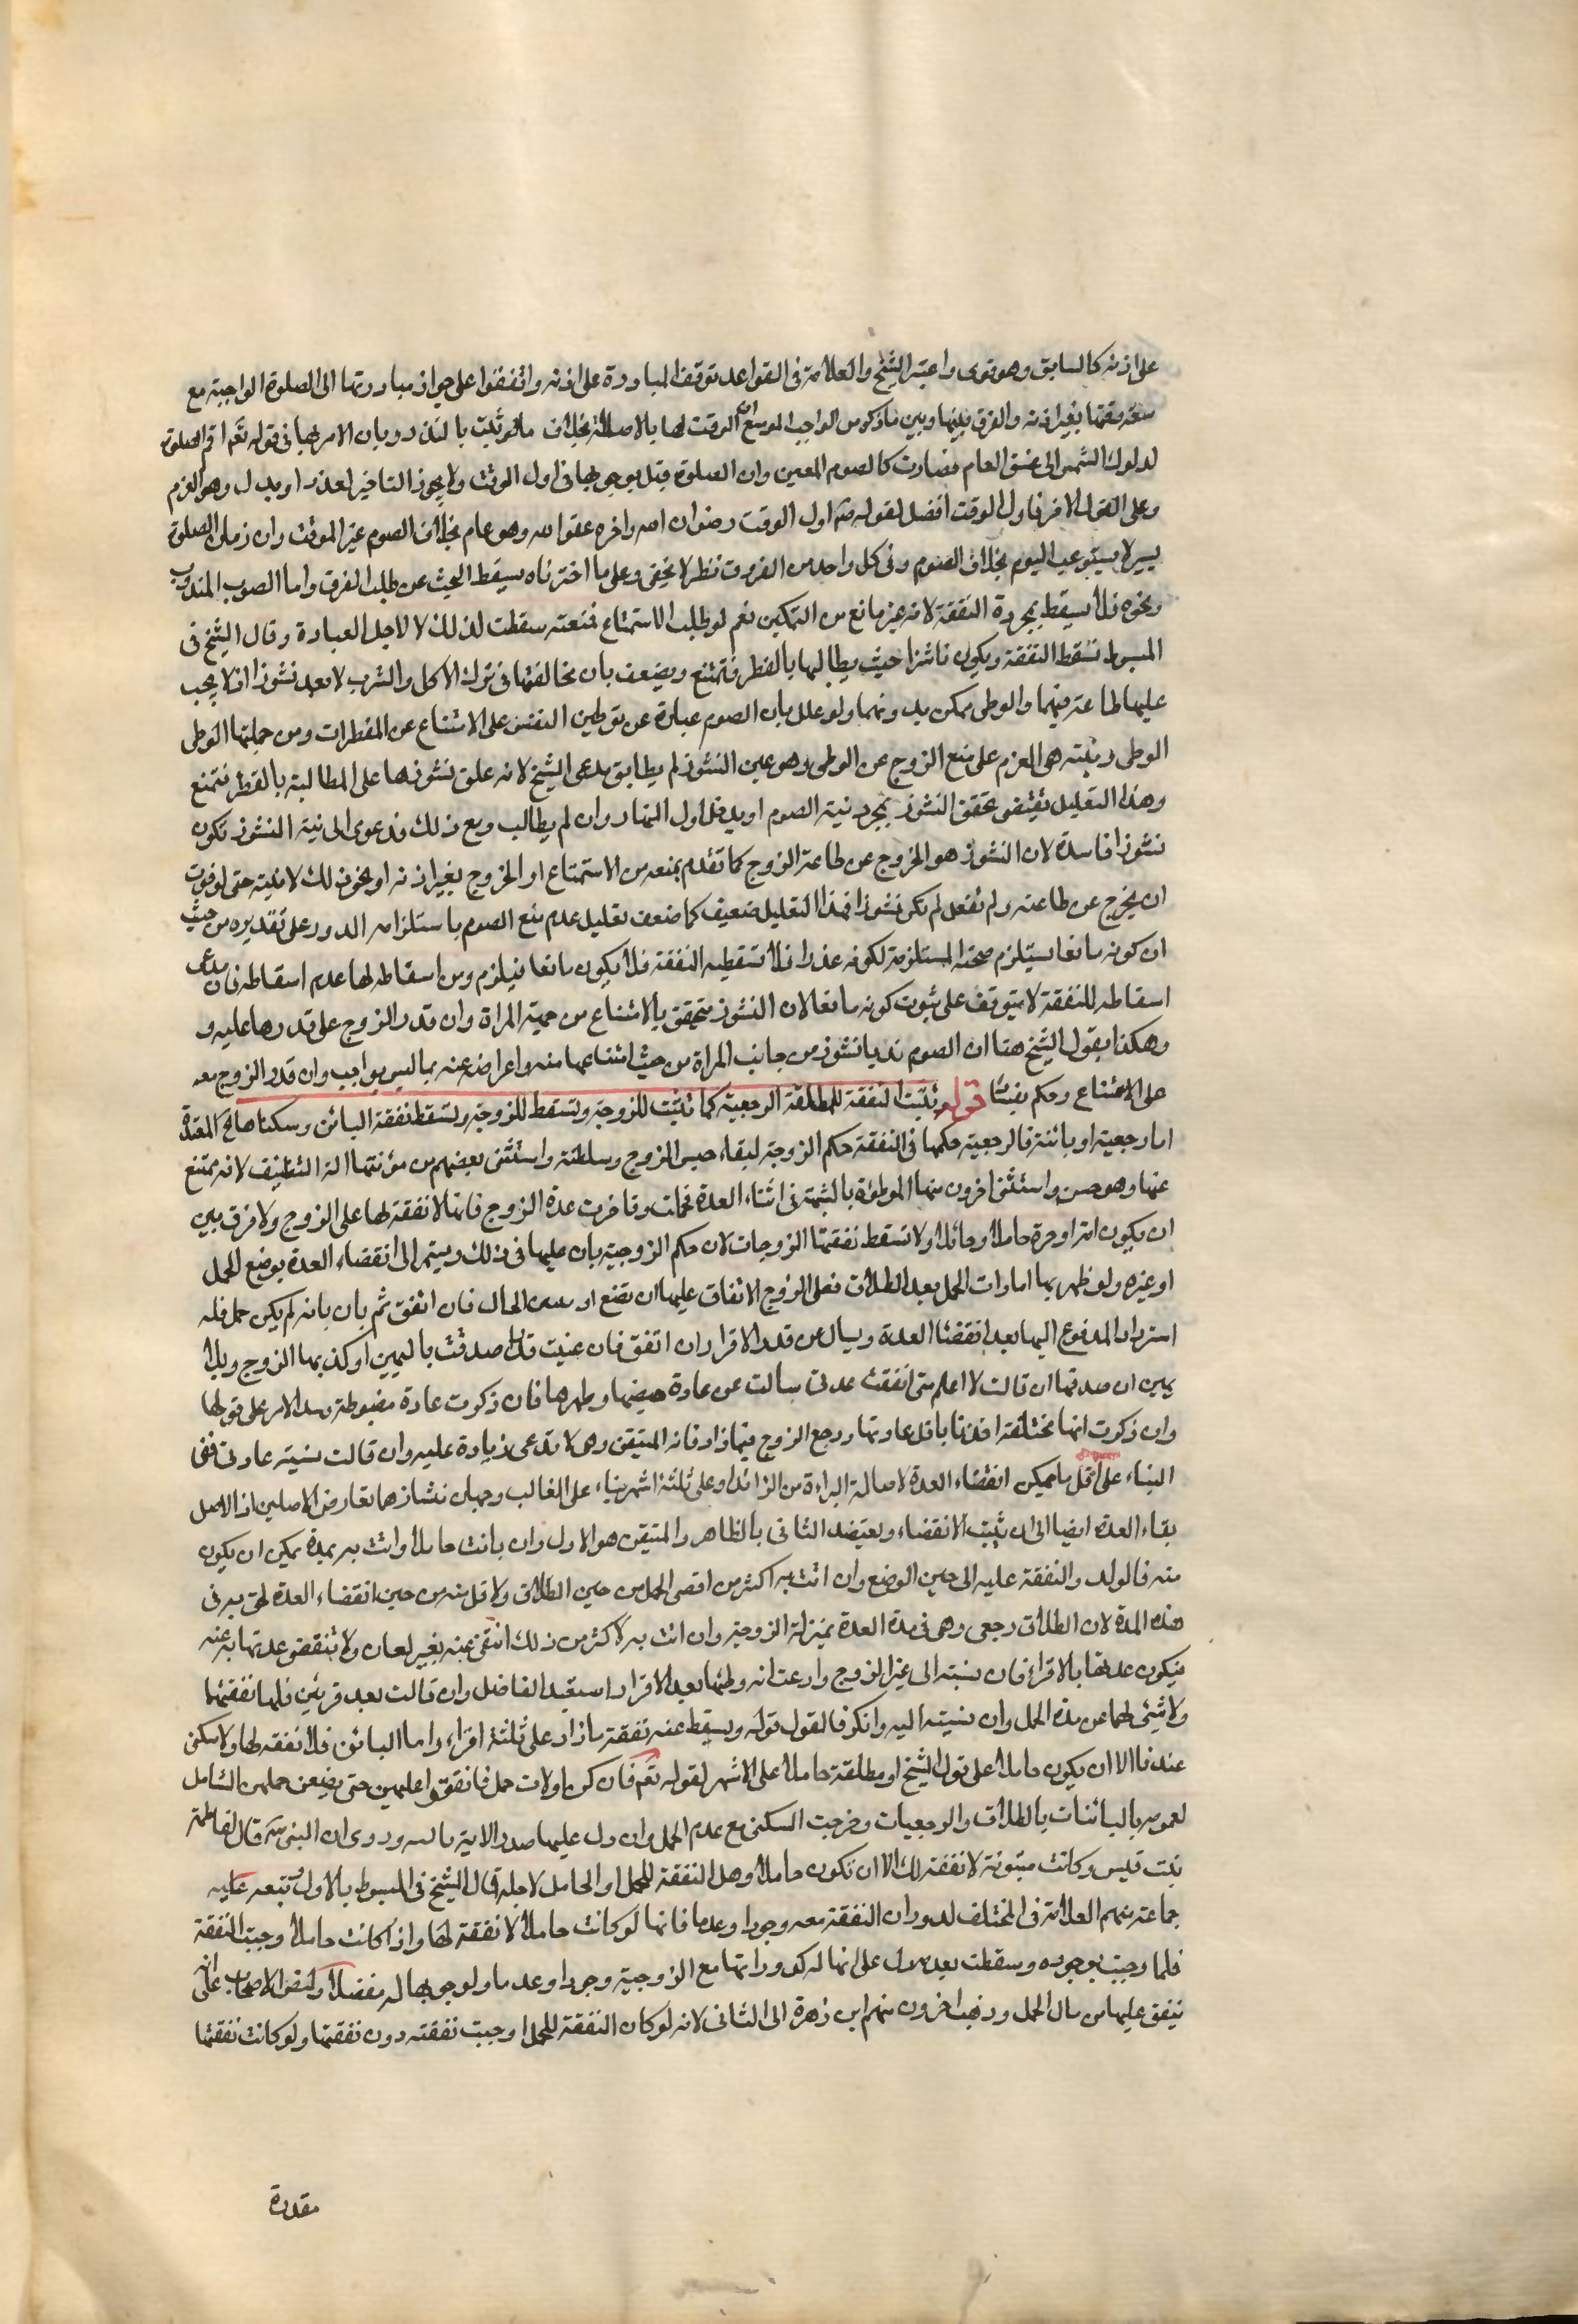 على اذنه كالسابق وهو قوى واعتبر الشيخ والعلامة فى القواعد توقف المبادرة على اذنه واتفقوا على جواز مبادرتها الى الصلوة الواجبة مع
سعة وقتها بغير اذنه والفرق بينها وبين ما ذكر من الواجب الموسع ان الوقت لها بالاصالة بخلاف ما لو ثبت بالنذر وبان الامر بها فى قوله تعم اقم الصلوة
لدلوك الشمس الى غسق العام فصارت كالصوم المعين وان الصلوة قيل بوجوبها فى اول الوقت ولا يجوز التاخير لعذر او بدل وهو العزم
وعلى القول الاخر فاول الوقت افضل لقوله ص اول الوقت رضوان الله واخره عفو الله وهو عام بخلاف الصوم غير الموقت وان زمان الصلوة
يسير لا يستوعب اليوم بخلاف الصوم وفى كل واحد من الفروق نظر لا يخفى وعلى ما اخترناه يسقط البحث عن طلب الفرق واما الصوم المندوب
ونحوه فلا يسقط بمجرده النفقة لانه غير مانع من التمكين نعم لو طلب الاستمتاع فمنعته سقطت لذلك لا لاجل العبادة وقال الشيخ فى
المبسوط تسقط النفقة ويكون ناشزا حيث يطالبها بالفطر فتمتنع ويضعف بان مخالفتها فى ترك الاكل والشرب لا يعد نشوزا اذ لا يجب
عليها طاعته فيهما والوطى ممكن بدونهما ولو علل بان الصوم عبارة عن توطين النفس على الامتناع عن المفطرات ومن جملتها الوطى
الوطى ونيته هى العزم على منع الزوج عن الوطى وهو عين النشوز لم يطابق مدعى الشيخ لانه علق نشوزها على المطالبة بالفطر فتمتنع
وهذا التعليل يقتضى تحقق النشوز بمجرد نية الصوم او بدخل اول النهار وان لم يطالب ومع ذلك فدعوى ان نية النشوز تكون
نشوزا فاسدة لان النشوز هو الخروج عن طاعة الزوج كما تقدم بمنعه من الاستمتاع او الخروج بغير اذنه او نحو ذلك لا بنيته حتى لو نوت
ان يخرج عن طاعته ولم تفعل لم تكن نشوزا فهذا التعليل ضعيف كما ضعف تعليل عدم منع الصوم باستلزامه الدور على تقديره من حيث
ان كونه مانعا يستلزم صحته المستلزمة لكونه عذرا فلا تسقط به النفقة فلا يكون مانعا فيلزم من اسقاطه لها عدم اسقاطه فان مدعى
اسقاطه للنفقة لا يتوقف على ثبوت كونه مانعا لان النشوز متحقق بالامتناع من جهة المراة وان قدر الزوج على قدرها عليه و
وهكذا يقول الشيخ هنا ان الصوم ندبا نشوز من جانب المراة من حيث امتناعها منه واعراضه عنه بما ليس بواجب وان قدر الزوج معه
على الامتناع وحكم بفيئا قوله وتثبت النفقة للمطلقة الرجعية كما تثبت للزوجة وتسقط للزوجة وتسقط نفقة الباين وسكناها الخ المعتدة
اما رجعية او بائنة فالرجعية حكمها فى النفقة حكم الزوجة لبقاء حبس الزوج وسلطنته واستثنى بعضهم من مؤنتها الة التنظيف لانه يمتنع
عنها وهو حسن واستثنى اخرون منها الموطوة بالشبهة فى اثناء العدة فحملت وتاخرت عدة الزوج فانها لا نفقة لها على الزوج ولا فرق بين
ان يكون امة او حرة حاملا او حائلا ولا تسقط نفقتها الزوجات لان حكم الزوجية بان عليها فى ذلك ويستمر الى انقضاء العدة بوضع الحمل
او غيره ولو ظهر بها امارات الحمل بعد الطلاق فعلى الزوج الانفاق عليها ان تضع او الحال فان انفق ثم بان بانه لم يكن حمل فله
استرداد المدفوع اليها بعد انقضاء العدة ويسال عن قدر الاقرار ان اتفق فان عينت قدرا صدقت باليمين او كذبها الزوج وبلا
يمين ان صدقها ان قالت لا اعلم متى انقضت عدتى سالت عن عادة حيضها وطهرها فان ذكرت عادة مضبوطة الامر على قولها
وان ذكرت انها مختلفة اخذنا باقل عاداتها ورجع الزوج فيما زاد فانه المتيقن وهى لا تدعى زيادة عليه وان قالت نسيت عادتى ففى
البناء على اقل ما يمكن انقضاء العدة لاصالة البراءة من الزائد او على ثلثة اشهر بناء على الغالب وجهان نشازها تعارض الاصلين اذ الاصل
بقاء العدة ايضا الى ان يثبت الانقضاء ويعتضد الثانى بالظاهر والمتيقن هو الاول وان بانت حاملا واتت به بمدة يمكن ان يكون
منه فالولد والنفقة عليه الى حين الوضع وان اتت به اكثر من اقصى الحمل من حين الطلاق ولاقل منه من حين انقضاء العدة لحق به فى
هذه المدة لان الطلاق رجعى وهى فى مدة العدة بمنزلة الزوجية وان اتت به لاكثر من ذلك انتفى عنه بغير لعان ولا تنقضى عدتها به عنه
فيكون عدتها بالاقراء فان نسبته الى غير الزوج وادعت انه وطئها بعد الاقراء استعيد الفاضل وان قالت بعد قرئين فلها نفقتهما
ولا شئ لها عن مدة الحمل وان نسبته اليه وانكر فالقول قوله ويسقط عنه نفقة ما زاد على ثلثة اقراء واما البائن فلا نفقة لها ولا سكنى
عندنا الا ان يكون حاملا على قول الشيخ او مطلقة حاملا على الاشهر لقوله تعم فان كن اولات حمل فانفقوا عليهن حتى يضعن حملهن الشامل
لعمومه بالبائنات بالطلاق والرجعيات وخرجت السكنى مع عدم الحمل وان دل عليها صدر الاية وروى ان النبى ص قال لفاطمة
بنت قيس وكانت مبتوتة لا نفقة لك الا ان تكون حاملا وهل النفقة للحمل او الحامل لاجله قال الشيخ فى المبسوط بالاول وتبعه عليه
جماعة منهم العلامة فى المختلف لدوران النفقة معه وجودا وعدما فانها لو كانت حاملا لا نفقة لها واذا كانت حاملا وجبت النفقة
فلما وجبت بوجوده وسقطت بعدمه دل على انها له كدورانها مع الزوجية وجودا وعدما ولوجوبها له منفصلا ولنص الاصحاب على انه
ينفق عليها من مال الحمل وذهب اخرون منهم ابن زهرة الى الثانى لانه لو كان النفقة للحمل وجبت نفقته دون نفقتها ولو كانت نفقتها
مقدرة